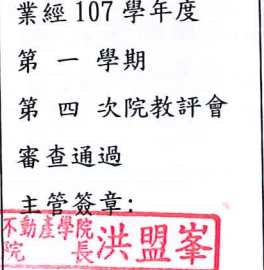 業經 107 學年度
第 一 學期
第 四 次院教評會
審查通過
主管簽章:
不動產學院
院 長 洪盟峯